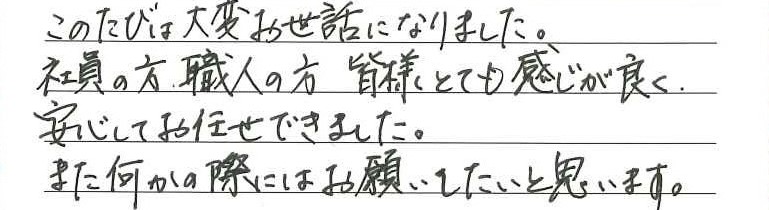 このたびは大変お世話になりました。
社員の方、職人の方 皆様、とても感じが良く、
安心してお任せできました。
また何かの際にはお願いしたいと思います。